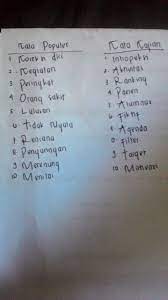 Kata Populer Kata Kajian
1 Koreksi diri 1. Intropeksi
2 Kegiatan 2 Aktivitas
3 Peringkat 3 Ranking
4 Orang sakit 4 Pasien
5 Lulusan 5 Alumnus
6 Tidak Nyata 6 Fiktif
7 Rencana 7 Agenda
8 Penyaringan 8 Filter
9 9 Target
10 Menilai 10